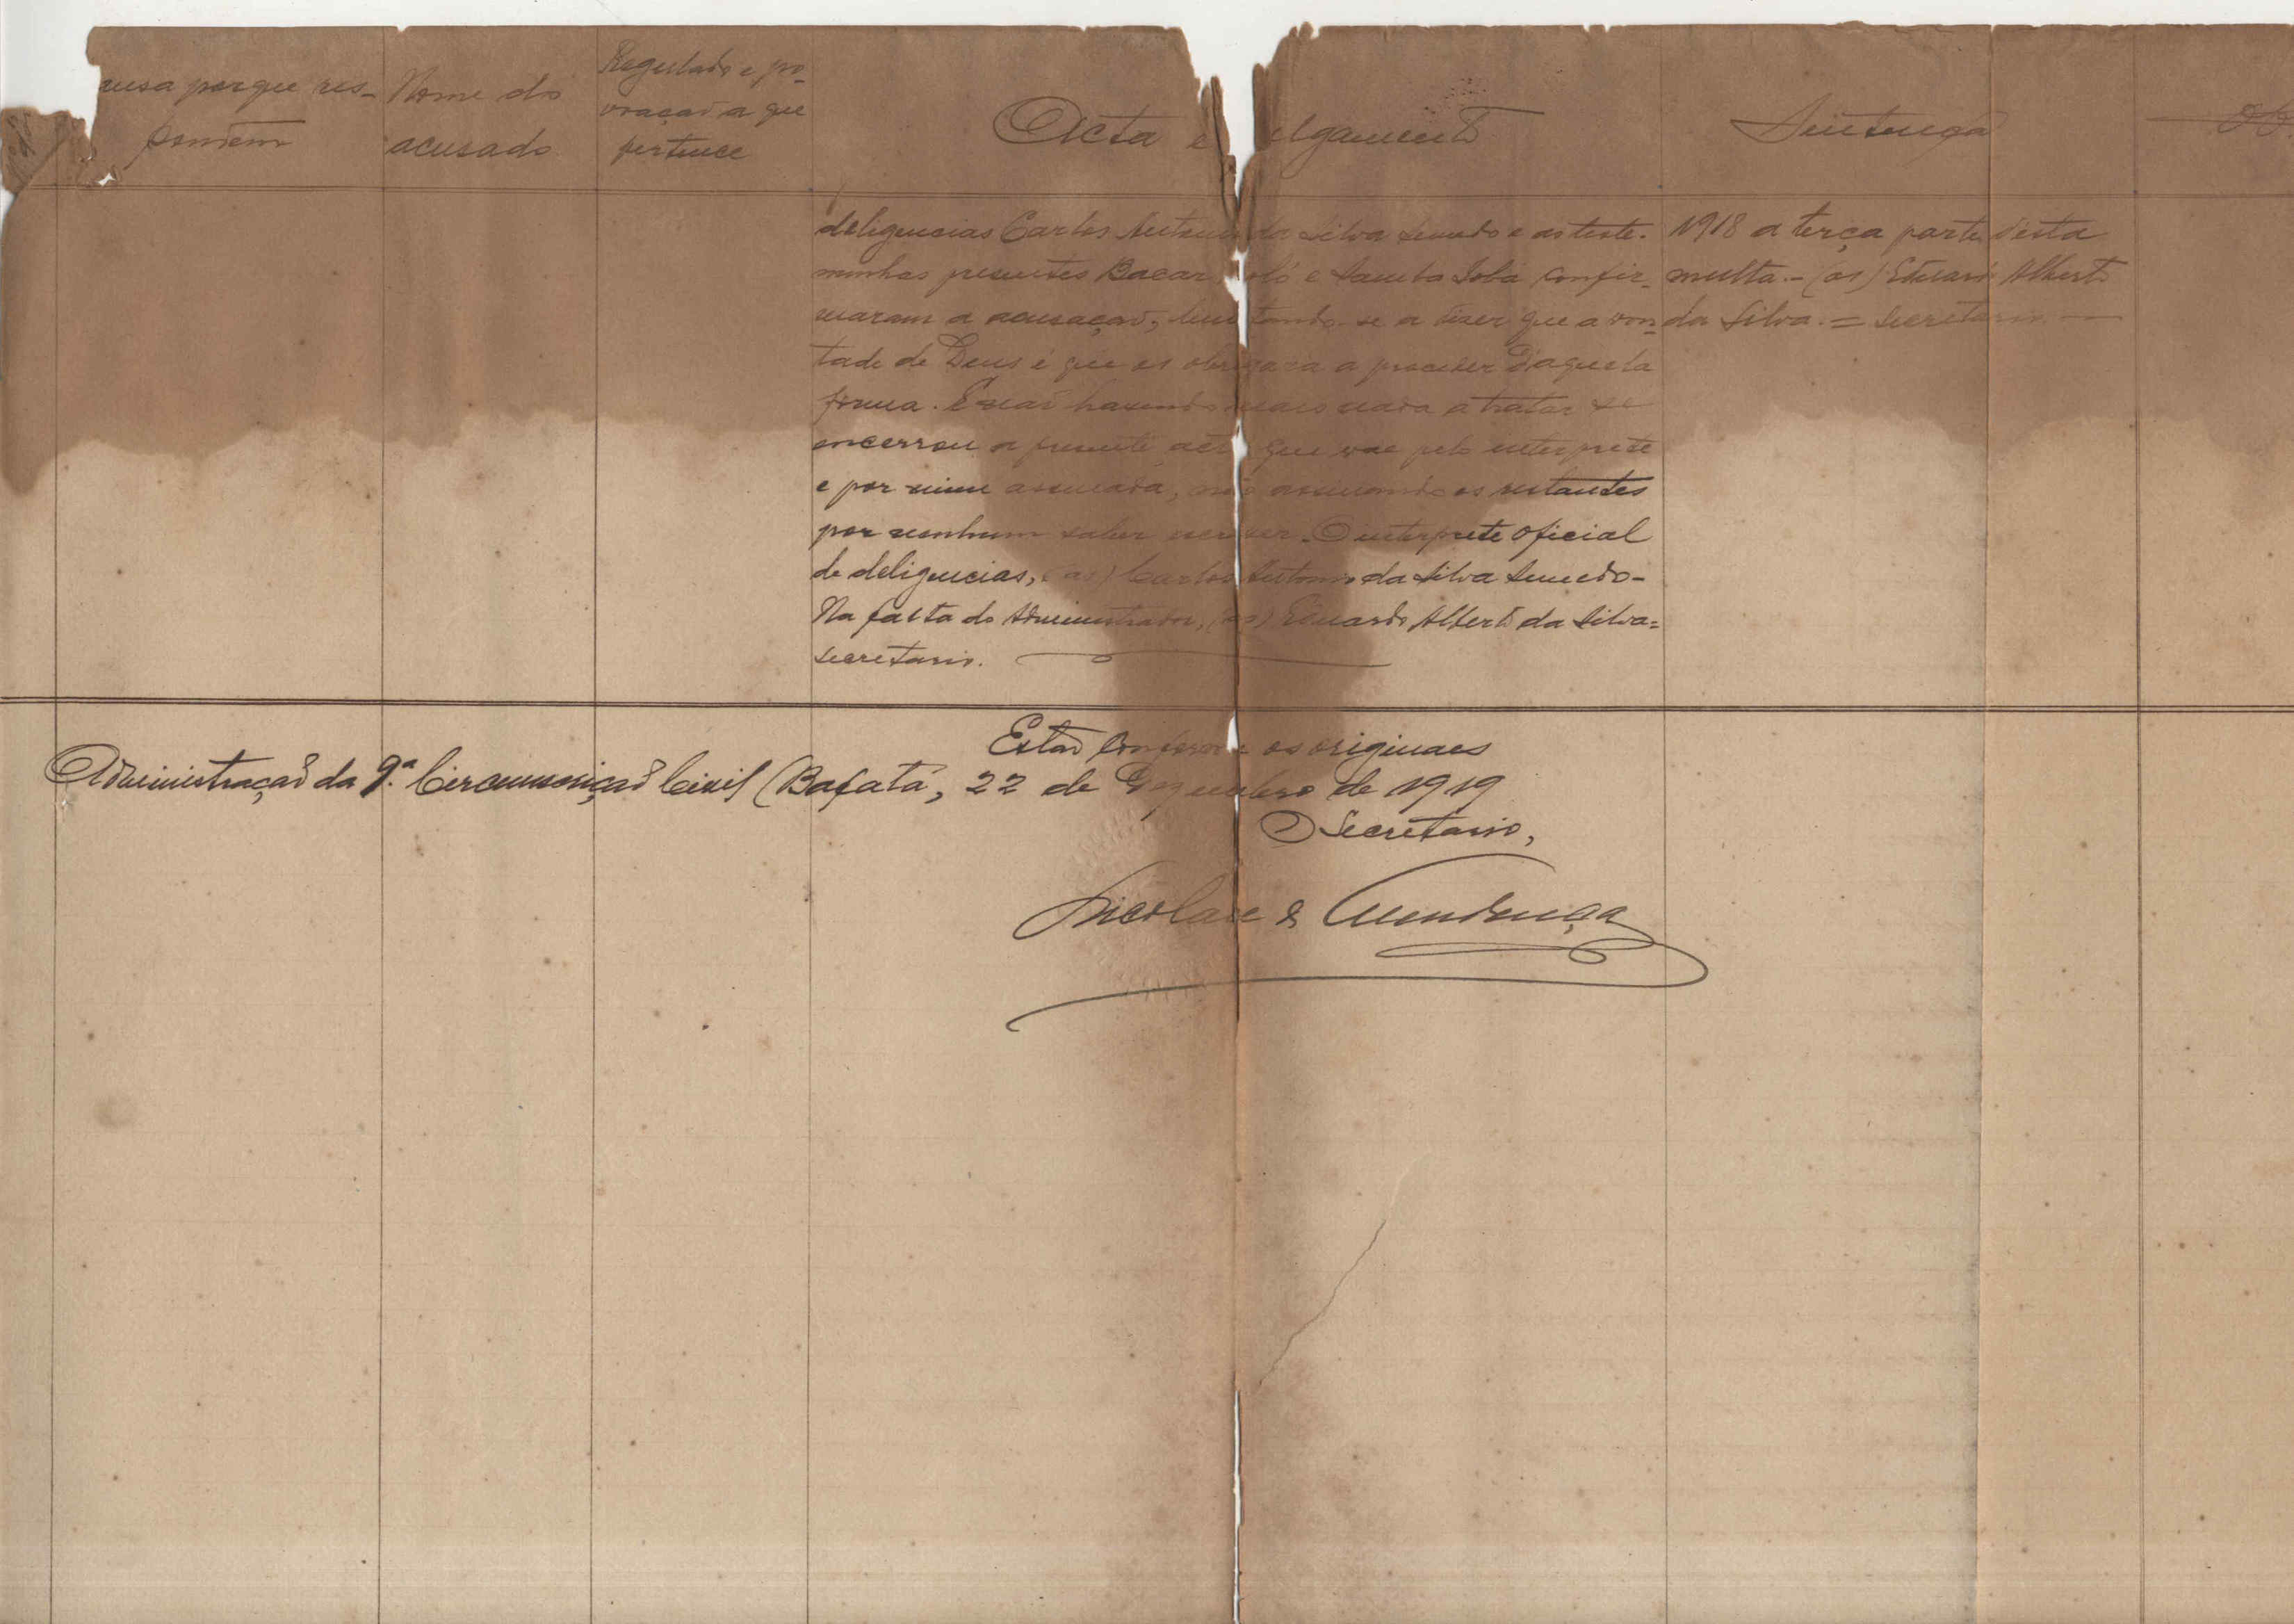 ausa porque res-
pondem
Nome do
acusado
Regulado e po-
voação a que
pertence
Acta e julgamento
Sentença
deligencias Carlos Antonio da Silva Semedo e as teste-
munhas presentes Bacar e Samba confir-
maram a acusação, limitando-se a dizer que a von-
tade de Deus é que os obrigara a proceder d'aquela
forma. E não havendo mais nada a tratar se
encerrou a presente acta que vae pelo interprete
e por mim assinada, não assinando os restantes
por nenhum saber escrever. O interprete oficial
de deligencias, (as) Carlos Antonio da Silva Semedo-
Na falta do Administrador, (as) Eduardo Alberto da Silva=
secretario.
1918 a terça parte desta
multa.- (as) Eduardo Alberto
da Silva.= Secretario.
Estão conforme os originaes
Administração da 9.ª Circumscrição Civil (Bafatá, 22 de Dezembro de 1919
O Secretario,
Nicolau de Mendonça